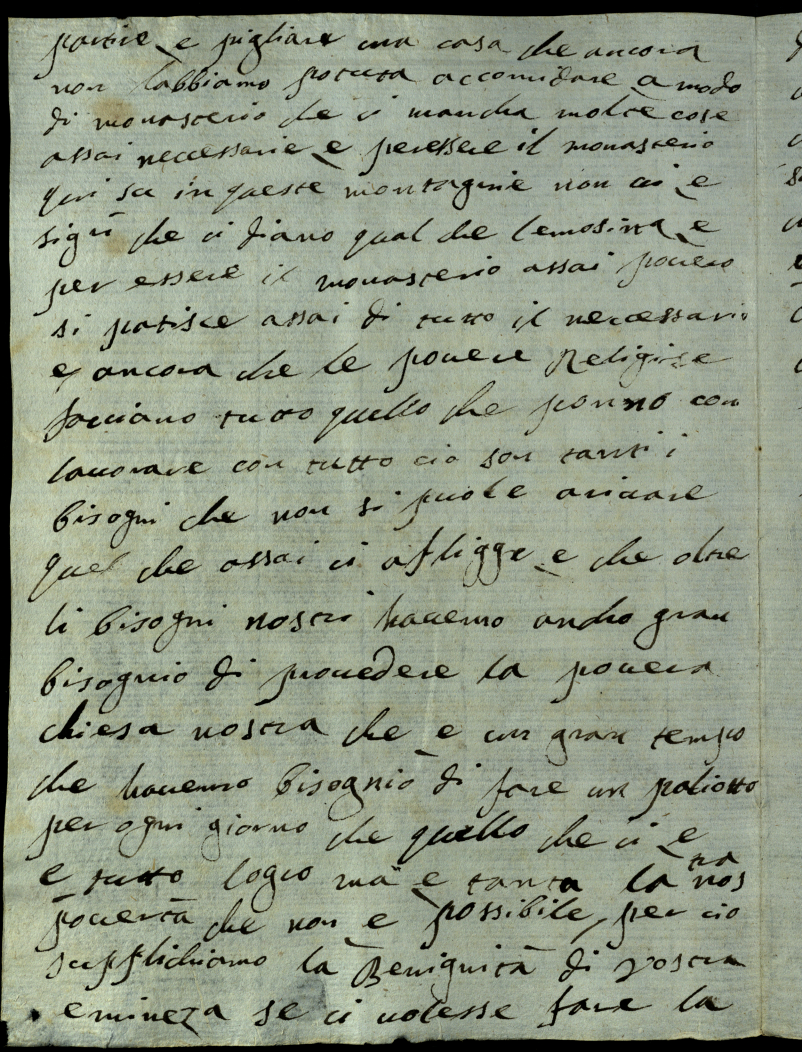 partire e pigliare una casa che ancora
non labbiamo potuta accomidare a modo
di monasterio che ci mancha molte cose
assai necessarie e peressere il monasterio
qui su in queste montagnie non ci e
sigri che ci diano qual che lemosina e
per essere il monasterio assai povero
si patisce assai di tutto il necessario
e ancora che le povere Religise
facciano tutto quello che ponno con
lavorare con tutto cio son tanti i
bisogni che non si puole arivare
quel che assai ci afligge e che oltre
li bisogni nostri havemo ancho gran
bisognio di provedere la povera
chiesa nostra che e un gran tempo
che havemo bisognio di fare un paliotto
per ogni giorno che quello che ci e
e tutto logro ma e tanta la nostra
poverta che non e possibile, per cio
supplichiamo la Benignita di vostra
emineza se ci volesse fare la